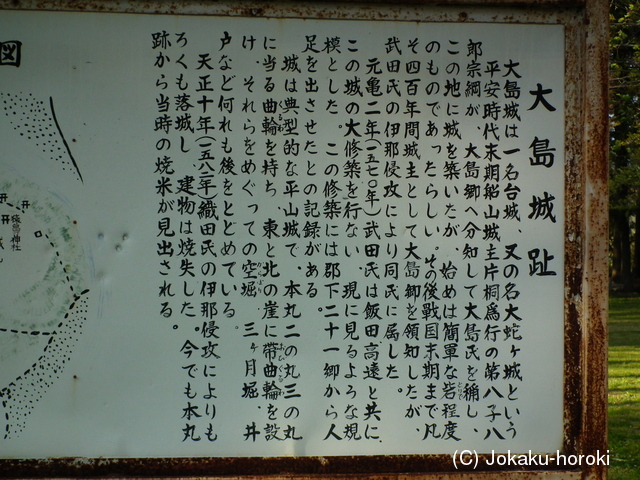 大島城趾
大島城は一名台城、又の名大蛇ヶ城という
平安時代末期船山城主片桐為行の第八子八
郎宗綱が、大島郷へ分知して大島氏を稱し、
この地に城を築いたが、始めは簡単な砦程度
のものであったらしい。その後戦国末期まで凡
そ四百年間城主として大島郷を領知したが、
武田氏の伊那侵攻により同氏に属した。
元亀二年(一五七〇年)武田氏は飯田高遠と共に
この城の大修築を行ない、現に見るような規
模とした。この修築には郡下二十一郷から人
足を出させたとの記録がある。
城は典型的な平山城で、本丸二の丸三の丸
に当る曲輪を持ち、東と北の崖に帯曲輪を設
け、それらをめぐっての空堀、三ヶ月堀、井
戸など何れも後をとどめている。
天正十年(一五八二年)織田氏の伊那侵攻によりも
ろくも落城し、建物は焼失した。今でも本丸
跡から当時の焼米が見出される。
図
神社
(C) Jokaku-horoki